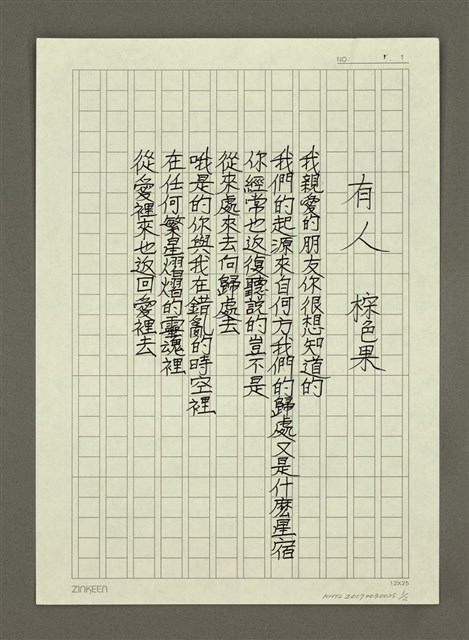 NO.
有人 棕色果
我親愛的朋友你很想知道的
我們的起源來自何方我們的歸處又是什麼星宿
你經常也返復聽說的豈不是
從來處來去向歸處去
哦是的你與我在錯亂的時空裡
在任何繁星熠熠的靈魂裡
從愛裡來也返回愛裡去
ZINKEEN
12X25
NMTL 20170030025 1/2